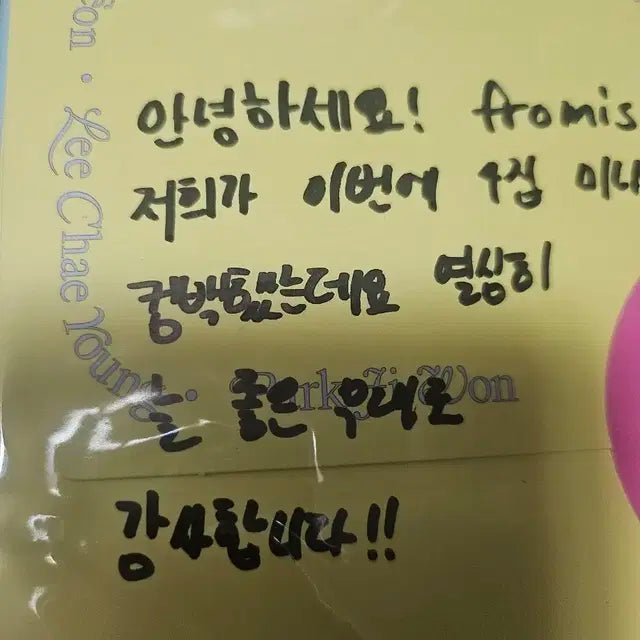 안녕하세요! fromis
저희가 이번에 4집 미니
컴백했는데요 열심히
늘 좋은 무대로
감사합니다!!
Son · Lee Chae Young · Park Ji Won